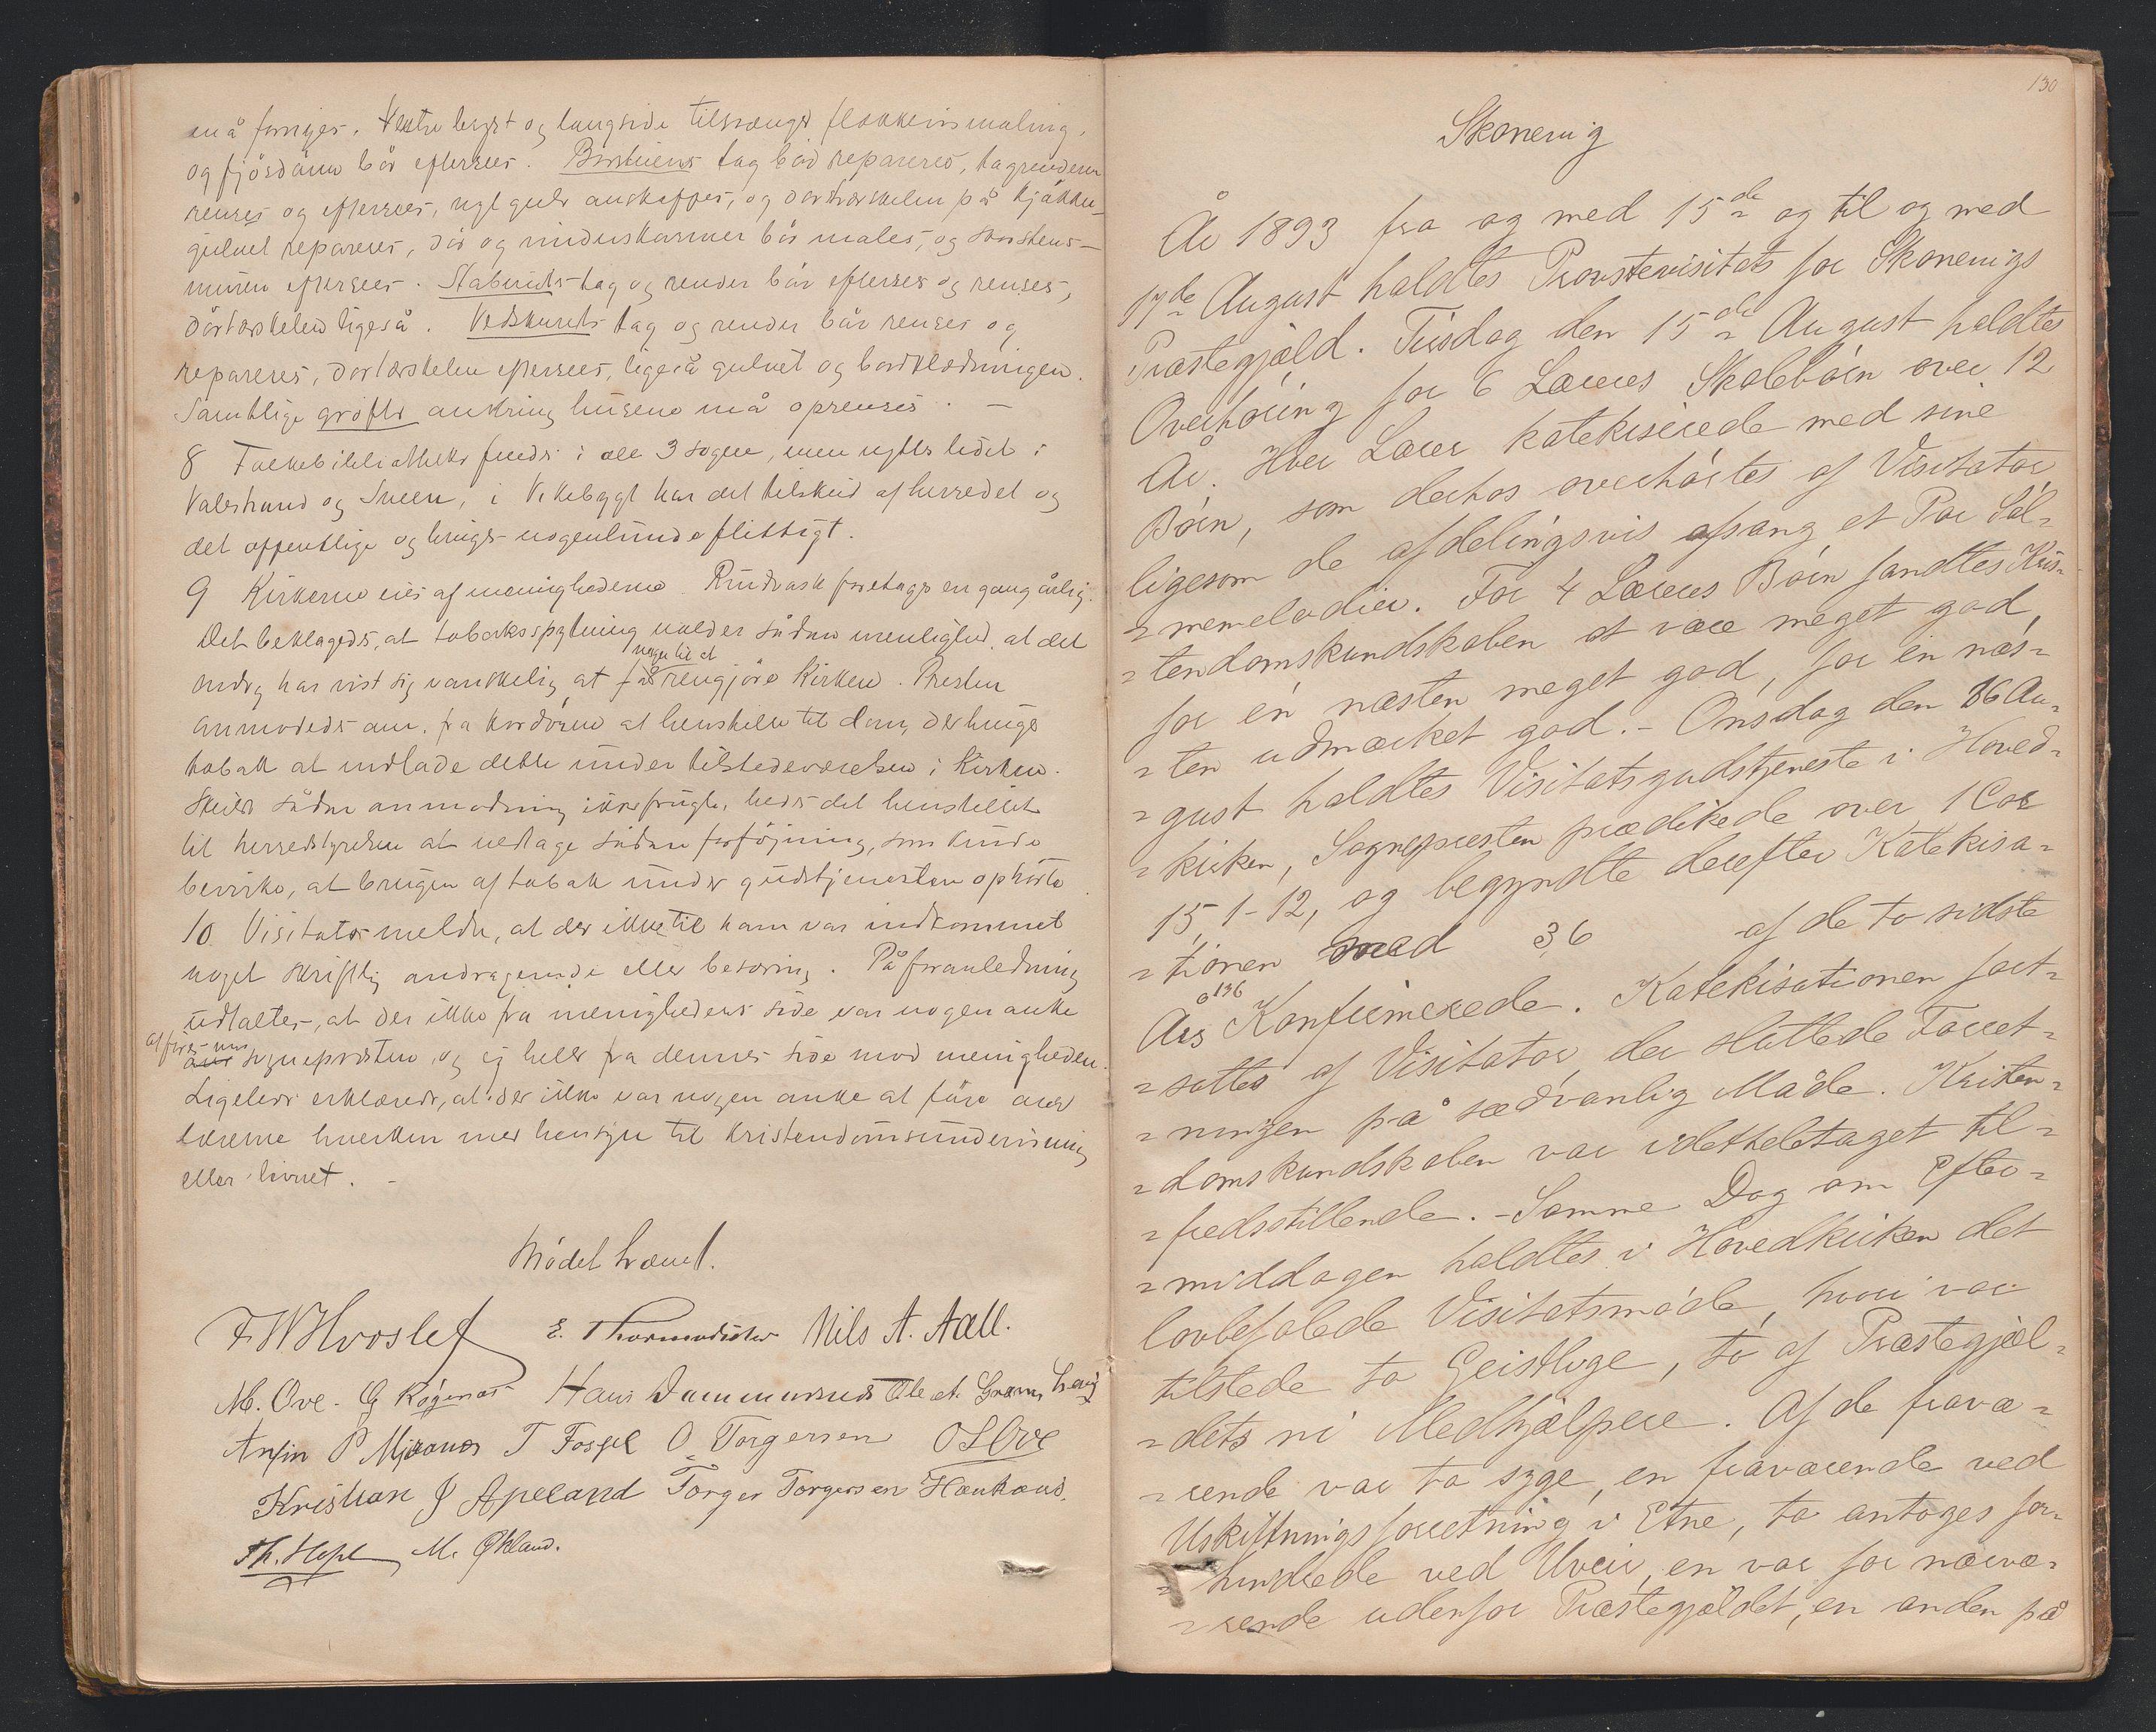 må fornyes. Vestre bryst og langside tilsvænges flekkevis maling,
og fjøsdøren bør eftersees. Borstuens tag bør repareres, tagrenderne
renses og eftersees, nyt gulv anskaffes, og dørtærskelen på kjøkken-
gulvet repareres, dør og vindueskarmer bør males, og skorstens-
muren eftersees. Staburets tag og render bør efterses og renses,
dørtærskelen ligeså. Vedskurets tag og render bør renses og
repareres, dørtærskelen eftersees, ligeså gulvet og bordklædningen.
Samtlige grøfter omkring husene må oprenses. —
8 Folkebibliotheker findes i alle 3 sogne, men nyttes lidet i
Valestrand og Sveen, i Vikebygt har det tilskud af herredet og
det offentlige og bruges nogenlunde flittigt.
9 Kirkerne eies af menighederne. Rundvask foretages en gang årlig.
Det beklagedes, at tobaksspytning volder sådan urenlighed, at det
endog har vist sig vanskelig at få nogen til at rengjøre Kirken. Presten
anmodedes om fra kordøren at henstille til dem, der bruge
tobak at undlade dette under tilstedeværelsen i Kirken.
Skulde sådan anmodning ikke frugte, bedes det henstillet
til herredstyrelsen at vedtage sådan forføining, som kunde
bevirke, at brugen af tobak under gudstjenesten ophørte.
10 Visitator meldte, at der ikke til ham var indkommet
noget skriftlig andragende eller besværing. På foranledning
udtaltes, at der ikke fra menighedens side var nogen anke
at føre mod sogneprosten, og ej heller fra dennes side mod menigheden.
Ligeledes erklæredes, at der ikke var nogen anke at føre over
lærerne hverken med hensyn til kristendomsundervisning
eller livnet. –
Mødet hævet.
F W Hvoslef E. Thormodsæter Nils A. Aall.
M. Ove. G Røgenæs Hans Dammersnes Ole A.
Anfin P Mjøanes T Fosse O Torgersen O S Ove
Kristian J Apeland Torger Torgersen Haukaas.
Th. Hope M. Økland.
130
Skonevig
År 1893 fra og med 15de og til og med
17de August holdtes Provstevisitats for Skonevigs
Præstegjæld. Tirsdag den 15de August holdtes
Overhøring for 6 Læreres Skolebørn over 12
År. Hver Lærer katekiserede med sine
Børn, som derhos overhørtes af Visitator
ligesom de afdelingsvis afsang et Par Sal-
-memelodier. For 4 Læreres Børn fandtes Kris-
-tendomskundskaben at være meget god,
for én næsten meget god, for én næs-
-ten udmærket god. - Onsdag den 16 Au-
-gust holdtes Visitatsgudstjeneste i Hoved-
-kirken, Sognepresten prædikede over 1 Cor
15, 1-12, og begyndte derefter Katekisa-
-tionen med 36 af de to sidste
136
Års Konfirmerede. Katekisationen fort-
-sattes af Visitator, der sluttede Forret-
-ningen på sædvanlig Måde. Kristen-
-domskundskaben var idetheletaget til-
-fredsstillende. - Samme Dag om Efter-
-middagen holdtes i Hovedkirken det
lovbefalede Visitatsmøde, hvori var
tilstede to Geistlige, to af Præstegjæl-
-dets ni Medhjælpere. Af de fravæ-
-rende var to syge, en fraværende ved
Udskiftningsforretning i Etne, to antoges for-
-hindrede ved Uveir, en var for nærvæ-
-rende udenfor Præstegjældet, en anden på